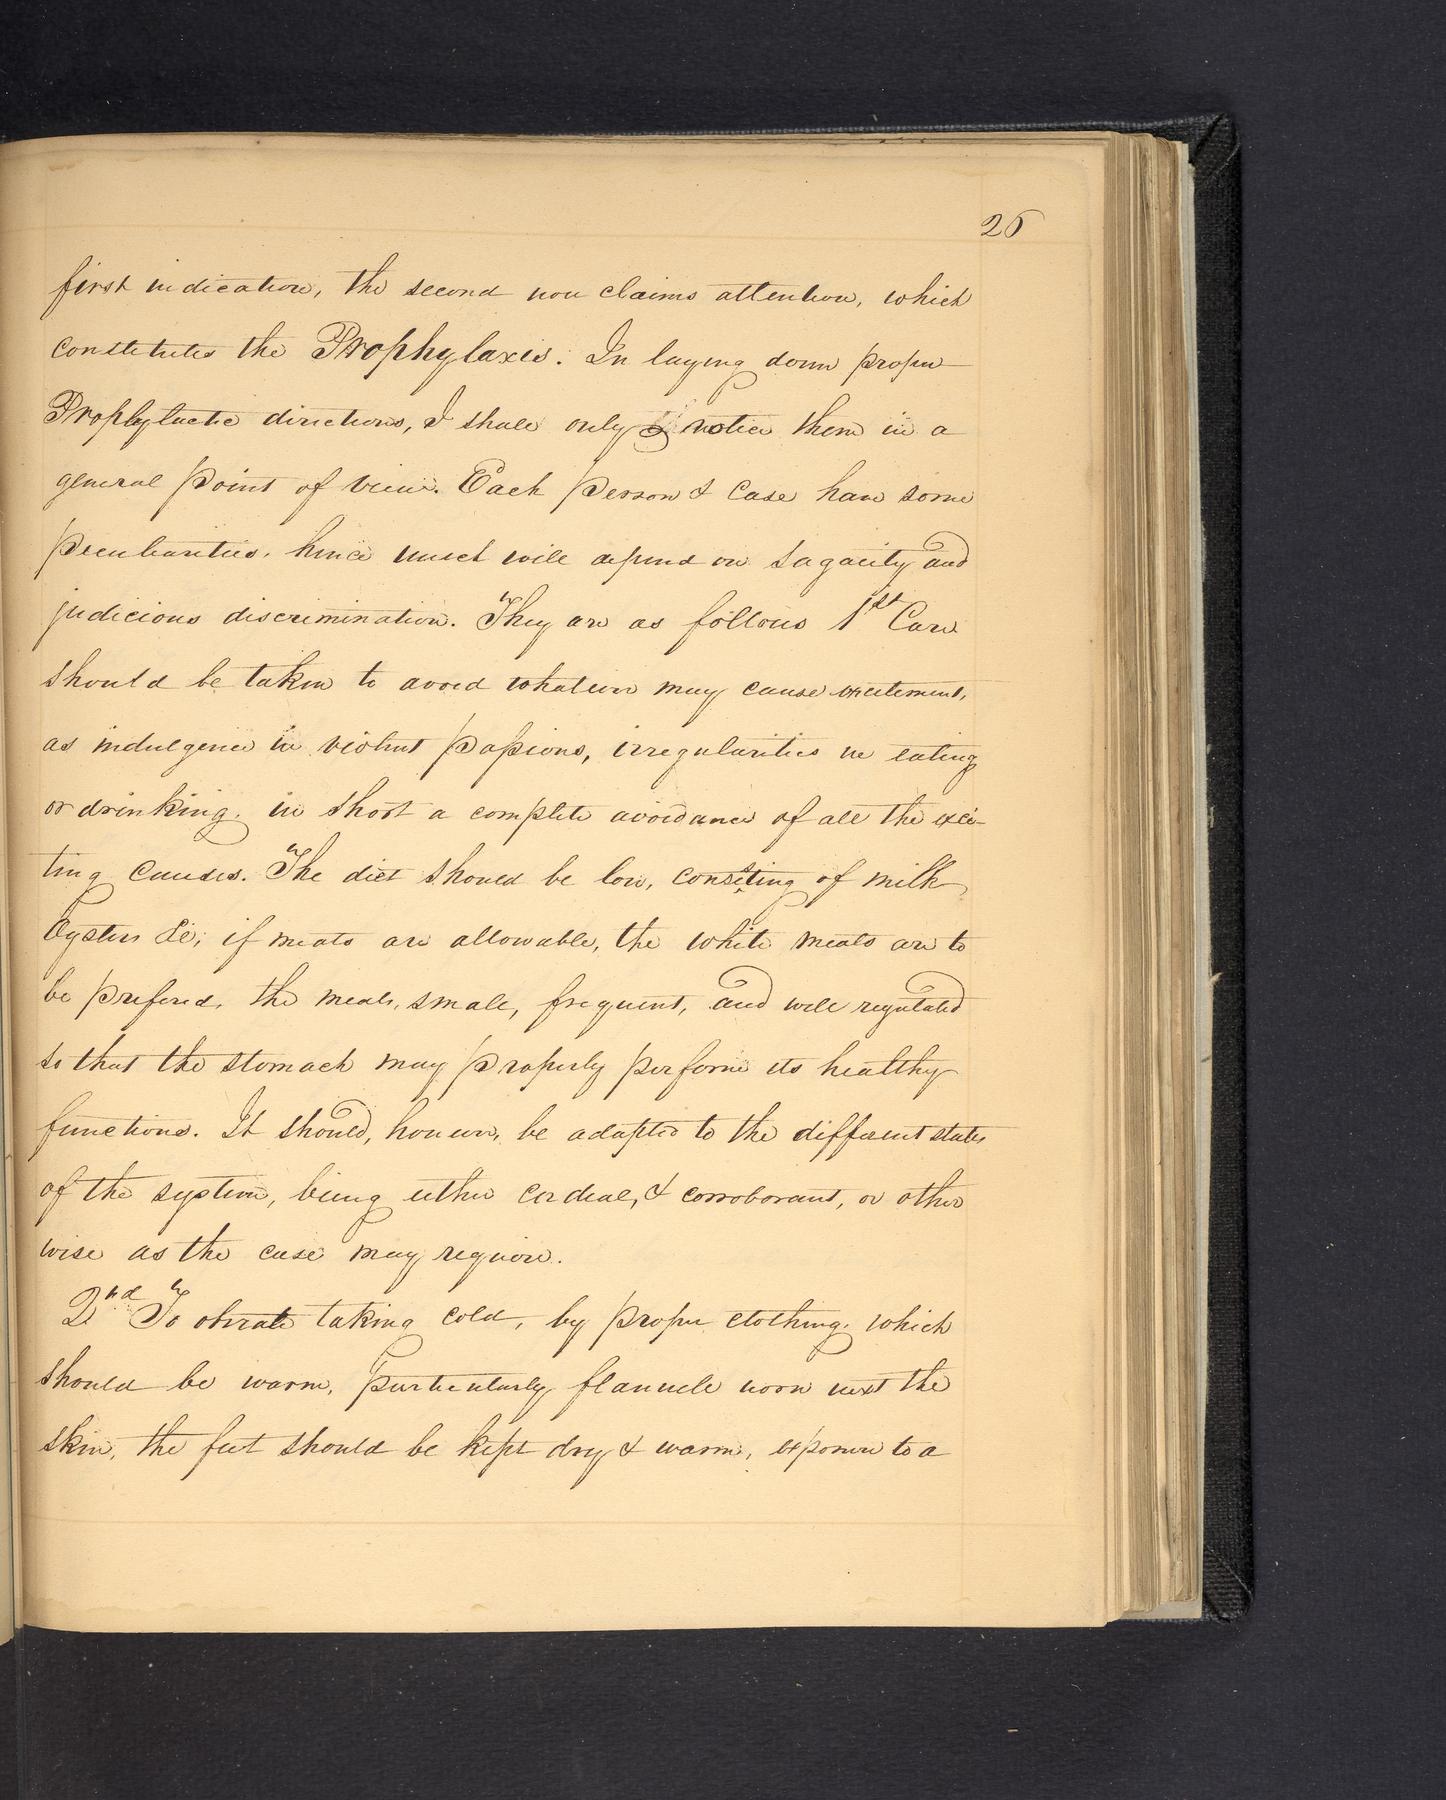 26
first indication, the second now claims attention, which
constitutes the Prophylaxis. In laying down proper
Prophylactic directions, I shall only notice them in a
general point of view. Each person & case have some
peculiarities, hence much will depend on sagacity and
judicious discrimination. They are as follows 1st Care
should be taken to avoid whatever may cause excitement,
as indulgence in violent passions, irregularities in eating
or drinking, in short a complete avoidance of all the exci-
ting causes. The diet should be low, consisting of milk
Oysters &c; if meats are allowable, the white meats are to
be prefered, the meals, small, frequent, and well regulated
so that the stomach may properly perform its healthy
functions. It should, however, be adapted to the different states
of the system, being either cordial, & corroborant, or other
wise as the case may require.
2nd To obviate taking cold, by proper clothing, which
should be warm, particularly flannels worn next the
skin, the feet should be kept dry & warm, exposure to a